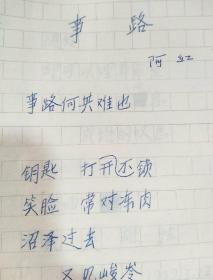 事 路
阿红
事路何其难也
钥匙 打不开锁
笑脸 常对冻肉
沼泽过去
又见峻岭